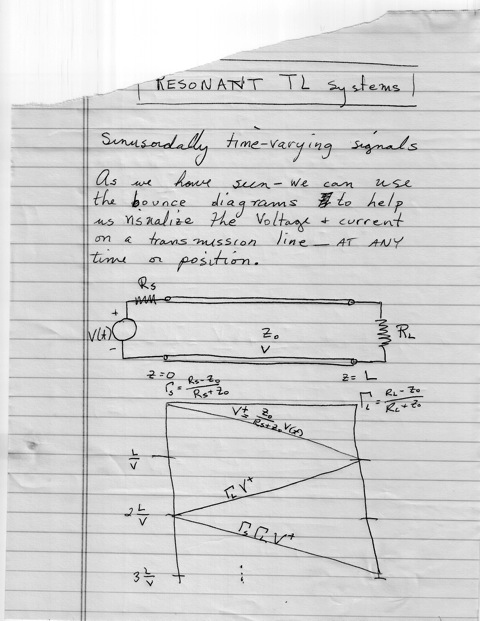 RESONANT TL systems
Sinusoidally time-varying signals
As we have seen - we can use
the bounce diagrams to help
us visualize the Voltage + current
on a transmission line - AT ANY
time or position.
Rs
+
V(t)
-
Z₀
V
RL
z=0
z=L
Γs = Rs-Z₀ / Rs+Z₀
ΓL = RL-Z₀ / RL+Z₀
V⁺ = Z₀ / Rs+Z₀ V(t)
L/V
ΓL V⁺
2 L/V
Γs ΓL V⁺
3 L/V
⋮